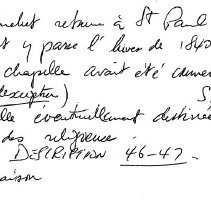 retourne à St Paul
y passe l'hiver de 1840
chapelle avait été
description) S
éventuellement destinée
des religieuse
DESCRIPTION 46-47.
aison